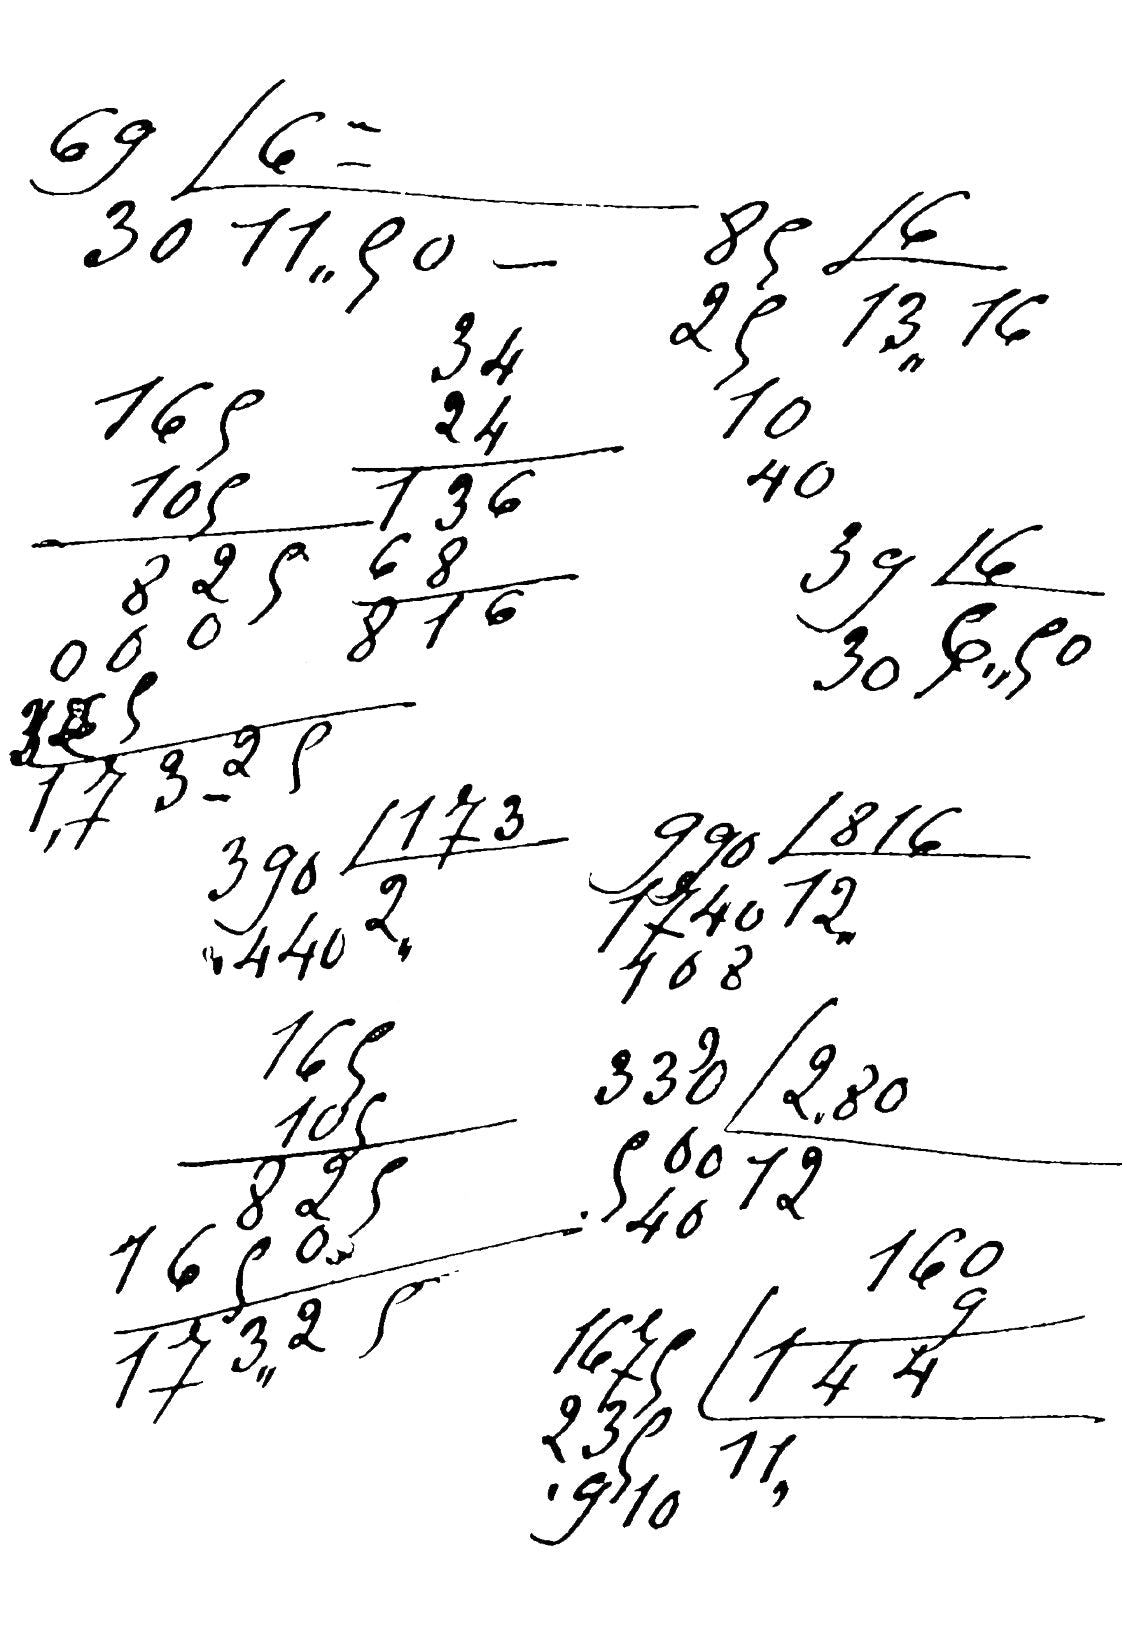 69 6 =
30 11,,50 —
85 6
25 13,, 16
10
40
34
24
136
68
816
165
105
825
000
5
1,73-25
39 6
30 6,,50
390 173
440 2,,
990 816
1740 12,,
108
165
105
825
165 0
173,,25
330 2.80
500 12
40
160
9
1675 144
235 11,
910